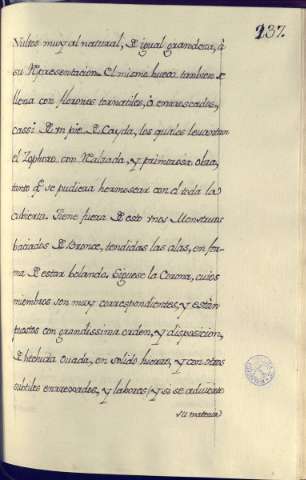 237.
Vultos muy al natural, de igual grandeza, à
su Representacion. El mismo hueco tambien se
llena con florones tornatiles, ò enroescados,
cassi de un pie de Cayda, los quales levantan
el Zophoro con Realzada, y primorosa obra,
tanto que se pudiera hermosear con el toda la
cubierta. Tiene fuera de esto unos Monstruos
baciados de Bronce, tendidas las alas, en for-
ma de estar bolando. Siguese la Corona, cuios
miembros son muy correspondientes, y están
puestos con grandissima orden, y disposicion,
de hechura ovada, en solido
y con otros
subtiles enrrexados, y labores, (y si se advierte
su materia)